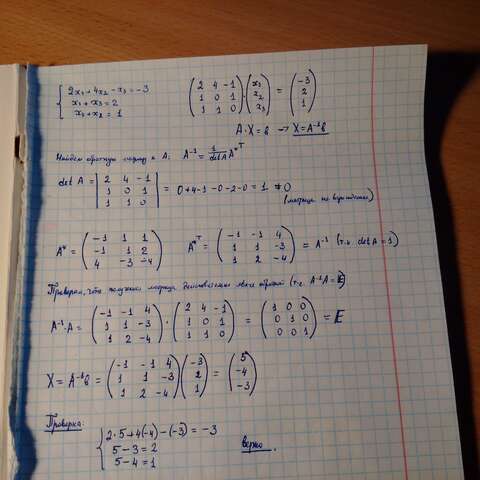 2x₁+4x₂-x₃=-3
x₁+x₃=2
x₁+x₂=1
(2 4 -1; 1 0 1; 1 1 0)·(x₁; x₂; x₃) = (-3; 2; 1)
A·X=в → X=A⁻¹в
Найдем обратную матрицу к A: A⁻¹=1/detA A*ᵀ
det A = |2 4 -1; 1 0 1; 1 1 0| = 0+4-1-0-2-0=1≠0
(матрица не вырождена)
A*=(-1 1 1; -1 1 2; 4 -3 -4) A*ᵀ=(-1 -1 4; 1 1 -3; 1 2 -4) = A⁻¹ (т.к. detA=1)
Проверим, что полученная матрица действительно явл. обратной (т.е. A⁻¹A=E)
A⁻¹·A=(-1 -1 4; 1 1 -3; 1 2 -4)·(2 4 -1; 1 0 1; 1 1 0) = (1 0 0; 0 1 0; 0 0 1) = E
X=A⁻¹в=(-1 -1 4; 1 1 -3; 1 2 -4)(-3; 2; 1) = (5; -4; -3)
Проверка:
2·5+4(-4)-(-3)=-3
5-3=2
5-4=1
верно.